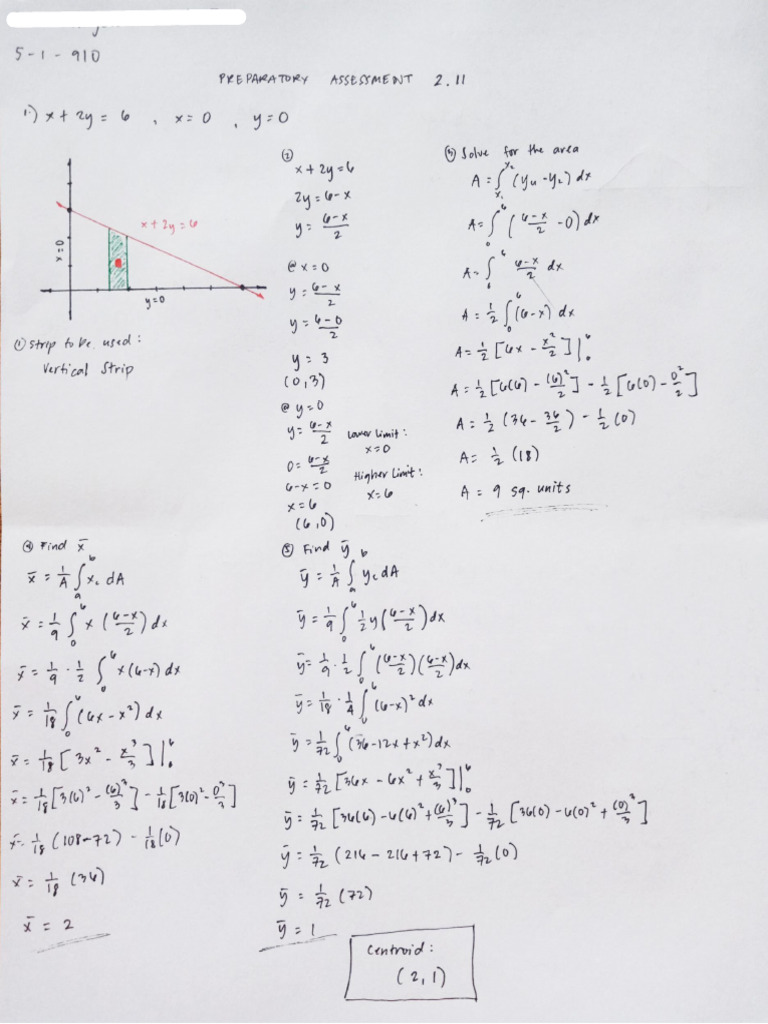 5-1-910
PREPARATORY ASSESSMENT 2.11
1.) x + 2y = 6 , x = 0 , y = 0
x + 2y = 6
x = 0
y = 0
① strip to be used :
vertical strip
②
x + 2y = 6
2y = 6 - x
y = (6-x)/2
@ x = 0
y = (6-x)/2
y = (6-0)/2
y = 3
(0,3)
@ y = 0
y = (6-x)/2
0 = (6-x)/2
6-x = 0
x = 6
(6,0)
Lower limit :
x = 0
Higher limit :
x = 6
③ Solve for the area
A = ∫_{x₁}^{x₂} (yu - yL) dx
A = ∫_0^6 ((6-x)/2 - 0) dx
A = ∫_0^6 (6-x)/2 dx
A = 1/2 ∫_0^6 (6-x) dx
A = 1/2 [6x - x²/2] |_0^6
A = 1/2 [6(6) - (6)²/2] - 1/2 [6(0) - 0²/2]
A = 1/2 (36 - 36/2) - 1/2 (0)
A = 1/2 (18)
A = 9 sq. units
④ Find x̄
x̄ = 1/A ∫_a^b xc dA
x̄ = 1/9 ∫_0^6 x ((6-x)/2) dx
x̄ = 1/9 · 1/2 ∫_0^6 x(6-x) dx
x̄ = 1/18 ∫_0^6 (6x - x²) dx
x̄ = 1/18 [3x² - x³/3] |_0^6
x̄ = 1/18 [3(6)² - (6)³/3] - 1/18 [3(0)² - 0³/3]
x̄ = 1/18 (108-72) - 1/18 (0)
x̄ = 1/18 (36)
x̄ = 2
⑤ Find ȳ
ȳ = 1/A ∫_a^b yc dA
ȳ = 1/9 ∫_0^6 1/2 y ((6-x)/2) dx
ȳ = 1/9 · 1/2 ∫_0^6 ((6-x)/2) ((6-x)/2) dx
ȳ = 1/18 · 1/4 ∫_0^6 (6-x)² dx
ȳ = 1/72 ∫_0^6 (36-12x+x²) dx
ȳ = 1/72 [36x - 6x² + x³/3] |_0^6
ȳ = 1/72 [36(6) - 6(6)² + (6)³/3] - 1/72 [36(0) - 6(0)² + (0)³/3]
ȳ = 1/72 (216 - 216 + 72) - 1/72 (0)
ȳ = 1/72 (72)
ȳ = 1
Centroid :
(2,1)